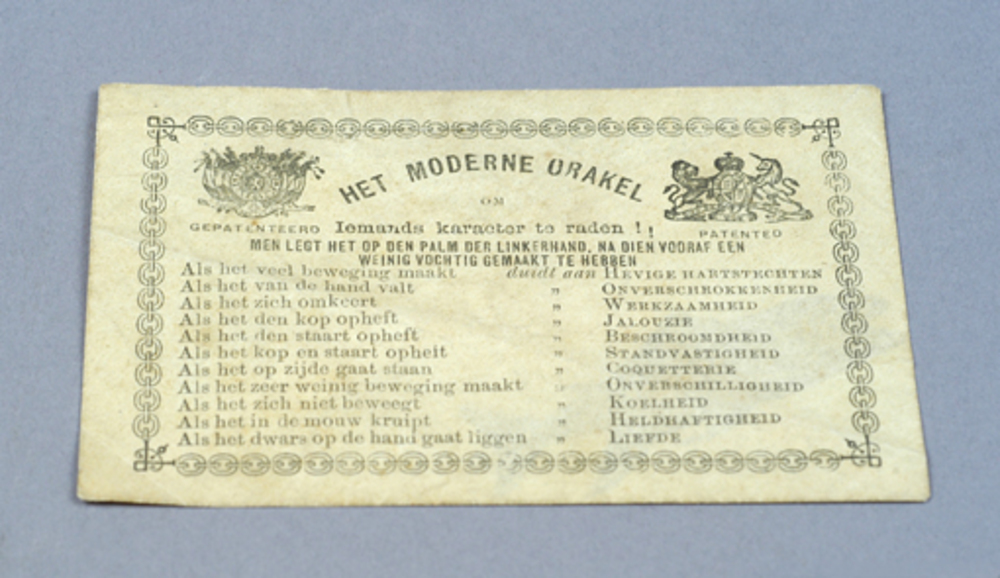 HET MODERNE ORAKEL
OM
GEPATENTEERD Iemands karacter te raden !! PATENTED
MEN LEGT HET OP DEN PALM DER LINKERHAND, NA DIEN VOORAF EEN
WEINIG VOCHTIG GEMAAKT TE HEBBEN
Als het veel beweging maakt duidt aan HEVIGE HARTSTECHTEN
Als het van de hand valt " ONVERSCHROKKENHEID
Als het zich omkeert " WERKZAAMHEID
Als het den kop opheft " JALOUZIE
Als het den staart opheft " BESCHROOMDHEID
Als het kop en staart opheft " STANDVASTIGHEID
Als het op zijde gaat staan " COQUETTERIE
Als het zeer weinig beweging maakt " ONVERSCHILLIGHEID
Als het zich niet beweegt " KOELHEID
Als het in de mouw kruipt " HELDHAFTIGHEID
Als het dwars op de hand gaat liggen " LIEFDE